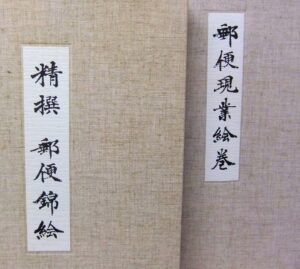 郵便現業絵巻
精撰 郵便錦絵